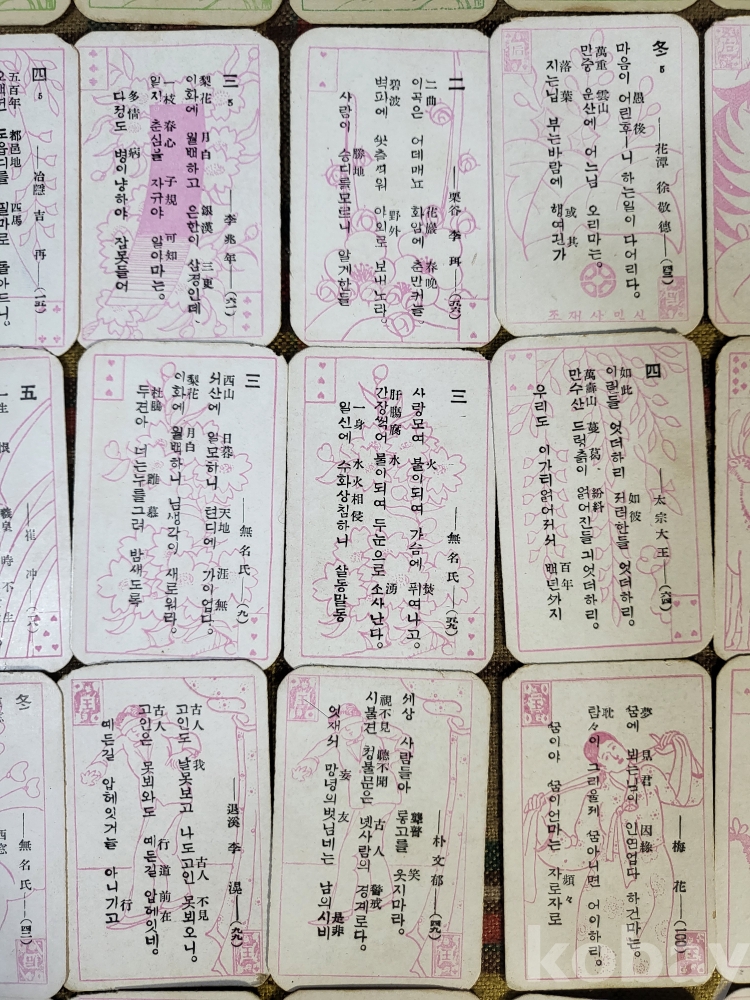 四
5
冶隱 吉再 (三五)
五百年 都邑地 匹馬
三
5
李兆年 (六一)
梨花 月白 銀漢 三更
이화에 월백하고 은한이 삼경인데、
一枝 春心 子規 可知
일지 춘심을 자규야 일이마는。
多情 病
다정도 병이냥하야 잠못들어
二
栗谷 李珥 (六六)
二曲 花巖 春晩
이곡은 어데매뇨 화암에 춘만커를、
碧波 野外
벽파에 꽃츨띄워 야외로 보내노라。
勝地
사람이 승디를모르니 알게한들
冬
5
花潭 徐敬德 (四三)
愚 後
마음이 어린후ㅣ니 하는일이 다어리다。
萬重 雲山
만중 운산에 어느님 오리마는。
落葉 或 其
지는닙 부는바람에 행여긘가
조재사민신
五
崔冲
三
無名氏 (九)
西山 日暮 天地 涯無
서산에 일모하니 텬디에 가이업다。
梨花 月白
이화에 월백하니 님생각이 새로워라。
杜鵑 誰 慕
두견아 너는누를그려 밤새도록
三
無名氏 (五九)
火 焚
사랑모여 불이되여 가슴에 퓌여나고。
肝腸腐 水 湧
간장썩어 물이되여 두눈으로 소사난다。
一身 水火相侵
일신에 수화상침하니 살동말동
四
太宗大王 (六四)
如此 如彼
이런들 엇더하리 저러한들 엇더하리。
萬壽山 蔓葛 紛糾
만수산 드렁츩이 얽어진들 긔엇더하리。
百年
우리도 이가티얽어저서 백년ᄭᅡ지
冬
無名氏 (四二)
退溪 李滉 (九九)
古人 我 古人 不見
고인도 날못보고 나도고인 못뵈오니。
古人 行道前在
고인은 못뵈와도 예든길 압헤잇네。
行
예든길 압헤잇거늘 아니가고
朴文郁 (四九)
聾瞽 笑
세상 사람들아 롱고를 웃지마라。
視不見 聽不聞 古人 警戒
시불견 청불문은 녯사람의 경계로다。
妄友 是非
엇재서 망녕의벗님네는 남의시비
梅花 (一〇〇)
夢 見君 因緣
ᄭᅮᆷ에 뵈는님이 인연업다 하건마는。
耽
탐々이 그리울제 ᄭᅮᆷ아니면 어이하리。
頻々
ᄭᅮᆷ이야 ᄭᅮᆷ이언마는 자로자로
kobay